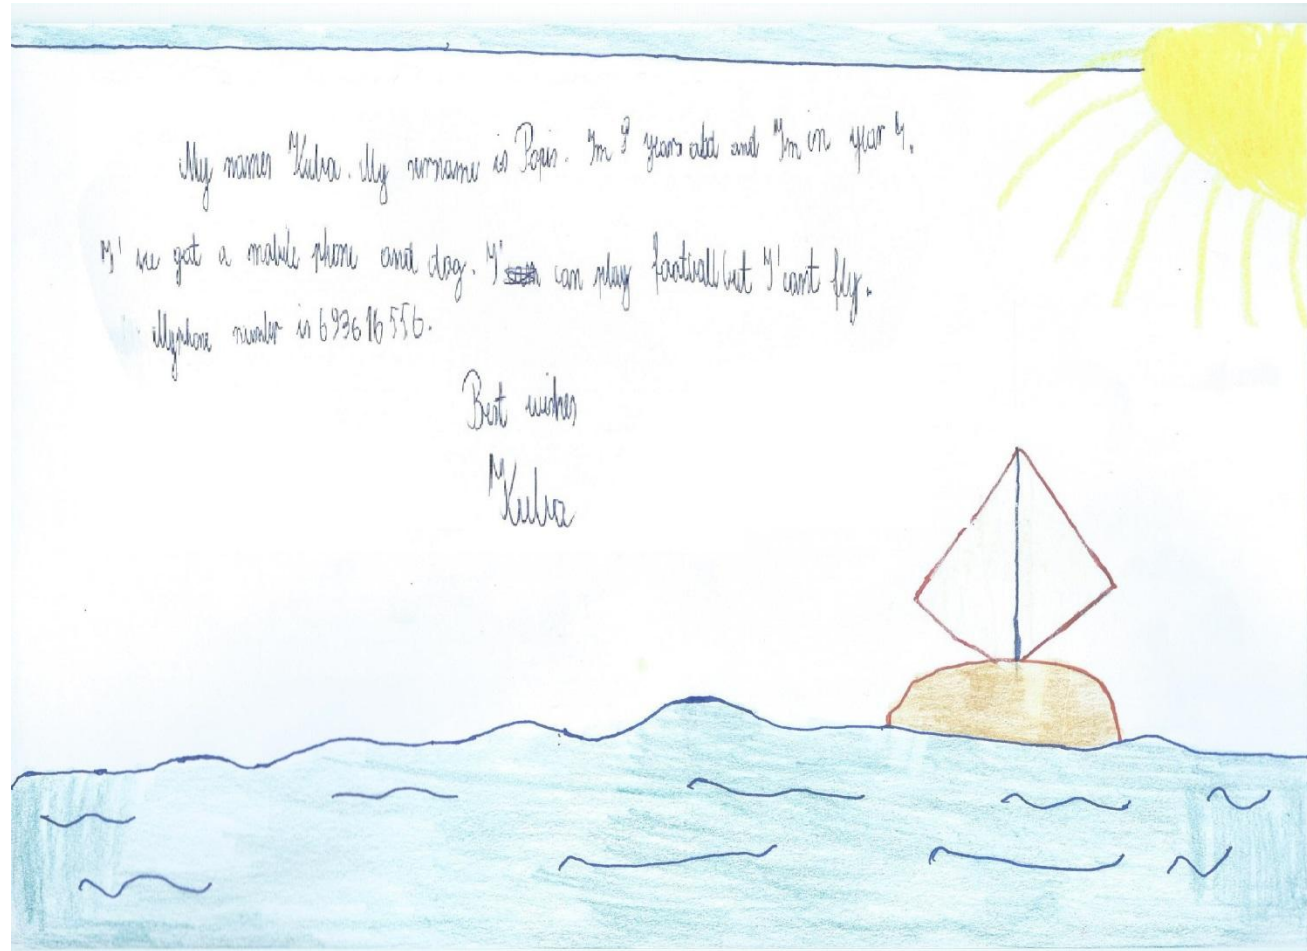 My names Kuba. My surname is Popis. Im 9 years old and I'm in year 4.
I've got a mobile phone and dog. I' can play football but I'cant fly.
My phone number is 693616556.
Best wishes
Kuba